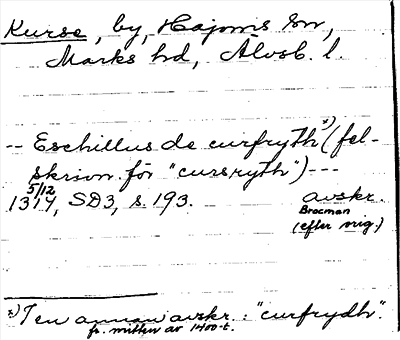 Kurse, by, Hajoms sn,
Marks hd, Älvsb. l.
-- Eschillus de curfryth x) (fel-
skrivn. för "cursryth") ---
5/12
1314, SD3, s. 193. avskr.
Brocman
(efter orig.)
x) I en annan avskr.: "curfrydh".
fr. mitten av 1400-t.